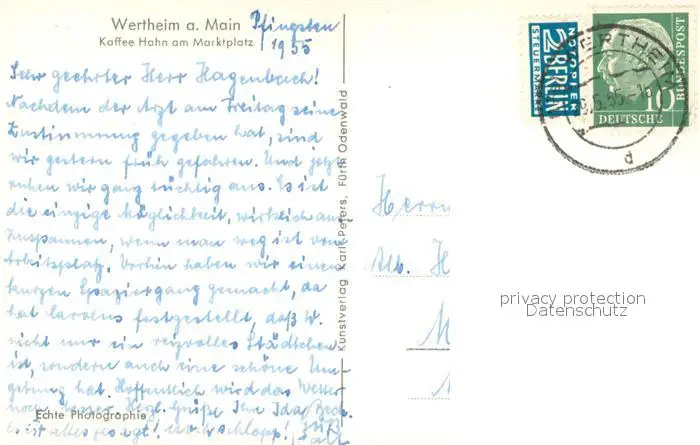 Wertheim a. Main Pfingsten
Kaffee Hahn am Marktplatz 1955
Sehr geehrter Herr Hagenbuch!
Nachdem der Arzt am Freitag seine
Zustimmung gegeben hat, sind
wir gestern früh gefahren. Und jetzt
ruhen wir ganz tüchtig aus. Es ist
die einzige Möglichkeit, wirklich aus
zuspannen, wenn man weg ist vom
Arbeitsplatz. Vorhin haben wir einen
kurzen Spaziergang gemacht, da
hat festgestellt, daß W.
nicht nur ein reizvolles Städtchen
ist, sondern auch eine schöne Um-
gebung hat. Hoffentlich wird das Wetter
noch besser. Herzl. Grüße Ihre Ida
Echte Photographie
Es ist alles gesagt!
Kunstverlag Karl Peters, Fürth Odenwald
NOTOPFER
2 BERLIN
STEUERMARKE
WERTHEIM
d
10
DEUTSCHE
BUNDESPOST
Herrn
Alb. H
privacy protection
Datenschutz